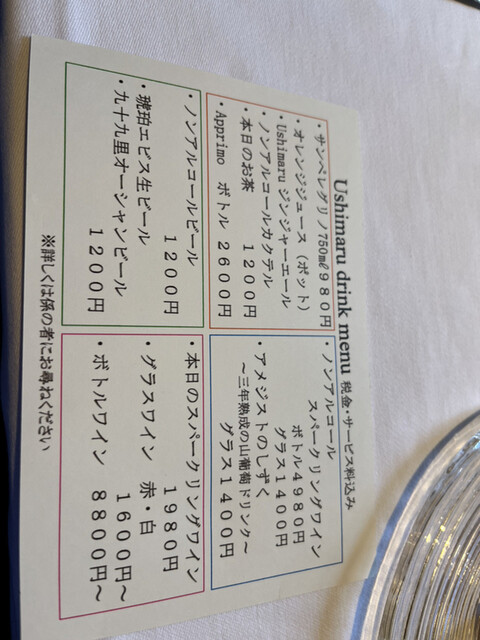 Ushimaru drink menu 税金・サービス料込み
・サンペレグリノ750㎖980円
・オレンジジュース（ポット）
・Ushimaru ジンジャーエール
・ノンアルコールカクテル
・本日のお茶 1200円
・Apprimo ボトル 2600円
・ノンアルコール
スパークリングワイン
ボトル4980円
グラス1400円
・アメジストのしずく
～三年熟成の山葡萄ドリンク～
グラス1400円
・ノンアルコールビール
1200円
・琥珀エビス生ビール
・九十九里オーシャンビール
1200円
・本日のスパークリングワイン
1980円
・グラスワイン 赤・白
1600円～
・ボトルワイン 8800円～
※詳しくは係の者にお尋ねください